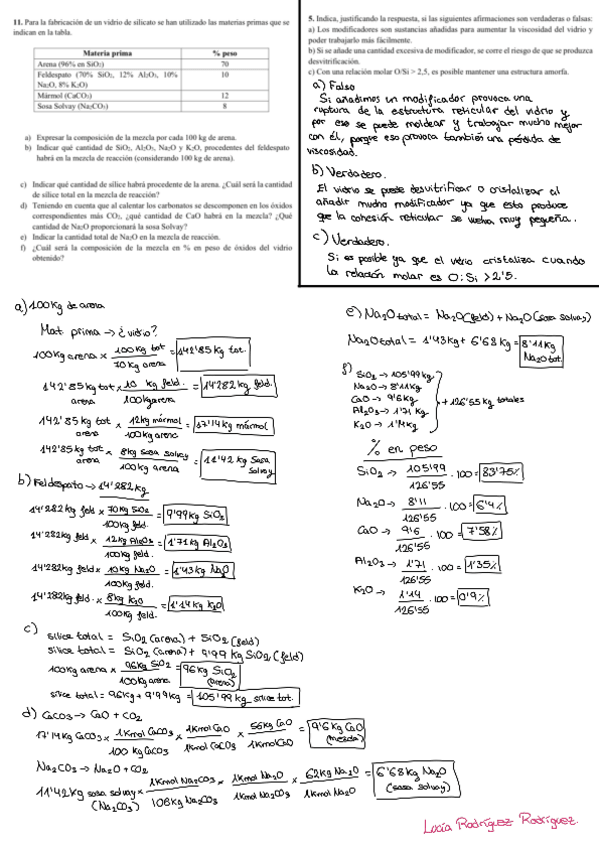 11. Para la fabricación de un vidrio de silicato se han utilizado las materias primas que se
indican en la tabla.
Materia prima % peso
Arena (96% en SiO₂) 70
Feldespato (70% SiO₂, 12% Al₂O₃, 10%
Na₂O, 8% K₂O) 10
Mármol (CaCO₃) 12
Sosa Solvay (Na₂CO₃) 8
a) Expresar la composición de la mezcla por cada 100 kg de arena.
b) Indicar qué cantidad de SiO₂, Al₂O₃, Na₂O y K₂O, procedentes del feldespato
habrá en la mezcla de reacción (considerando 100 kg de arena).
c) Indicar qué cantidad de sílice habrá procedente de la arena. ¿Cuál será la cantidad
de sílice total en la mezcla de reacción?
d) Teniendo en cuenta que al calentar los carbonatos se descomponen en los óxidos
correspondientes más CO₂, ¿qué cantidad de CaO habrá en la mezcla? ¿Qué
cantidad de Na₂O proporcionará la sosa Solvay?
e) Indicar la cantidad total de Na₂O en la mezcla de reacción.
f) ¿Cuál será la composición de la mezcla en % en peso de óxidos del vidrio
obtenido?
5. Indica, justificando la respuesta, si las siguientes afirmaciones son verdaderas o falsas:
a) Los modificadores son sustancias añadidas para aumentar la viscosidad del vidrio y
poder trabajarlo más fácilmente.
b) Si se añade una cantidad excesiva de modificador, se corre el riesgo de que se produzca
desvitrificación.
c) Con una relación molar O/Si > 2,5, es posible mantener una estructura amorfa.
a) Falso
Si añadimos un modificador provoca una
ruptura de la estructura reticular del vidrio y
por eso se puede moldear y trabajar mucho mejor
con él, porque eso provoca también una pérdida de
viscosidad.
b) Verdadero.
El vidrio se puede desvitrificar o cristalizar al
añadir mucho modificador ya que esto produce
que la cohesión reticular se vuelva muy pequeña.
c) Verdadero.
Si es posible ya que el vidrio cristaliza cuando
la relación molar es O:Si > 2'5.
a) 100 kg de arena
Mat prima → ¿vidrio?
100 kg arena × 100 kg tot / 70 kg arena = 142'85 kg tot.
142'85 kg tot × 10 kg feld. / 100 kg arena = 14'282 kg feld.
142'85 kg tot × 12 kg mármol / 100 kg arena = 17'14 kg mármol
142'85 kg tot × 8 kg sosa solvay / 100 kg arena = 11'42 kg sosa solvay
b) Feldespato → 14'282 kg
14'282 kg feld × 70 kg SiO₂ / 100 kg feld. = 9'99 kg SiO₂
14'282 kg feld × 12 kg Al₂O₃ / 100 kg feld. = 1'71 kg Al₂O₃
14'282 kg feld × 10 kg Na₂O / 100 kg feld. = 1'43 kg Na₂O
14'282 kg feld. × 8 kg K₂O / 100 kg feld. = 1'14 kg K₂O
c) sílice total = SiO₂ (arena) + SiO₂ (feld)
sílice total = SiO₂ (arena) + 9'99 kg SiO₂ (feld)
100 kg arena × 96 kg SiO₂ / 100 kg arena = 96 kg SiO₂ (arena)
sílice total = 96 kg + 9'99 kg = 105'99 kg sílice tot.
d) CaCO₃ → CaO + CO₂
17'14 kg CaCO₃ × 1 kmol CaCO₃ / 100 kg CaCO₃ × 1 kmol CaO / 1 kmol CaCO₃ × 56 kg CaO / 1 kmol CaO = 9'6 kg CaO (mezcla)
Na₂CO₃ → Na₂O + CO₂
11'42 kg sosa solvay (Na₂CO₃) × 1 kmol Na₂CO₃ / 106 kg Na₂CO₃ × 1 kmol Na₂O / 1 kmol Na₂CO₃ × 62 kg Na₂O / 1 kmol Na₂O = 6'68 kg Na₂O (sosa solvay)
e) Na₂O total = Na₂O (feld) + Na₂O (sosa solvay)
Na₂O total = 1'43 kg + 6'68 kg = 8'11 kg Na₂O tot.
f) SiO₂ → 105'99 kg
Na₂O → 8'11 kg
CaO → 9'6 kg
Al₂O₃ → 1'71 kg
K₂O → 1'14 kg
+ 126'55 kg totales
% en peso
SiO₂ → 105'99 / 126'55 · 100 = 83'75%
Na₂O → 8'11 / 126'55 · 100 = 6'4%
CaO → 9'6 / 126'55 · 100 = 7'58%
Al₂O₃ → 1'71 / 126'55 · 100 = 1'35%
K₂O → 1'14 / 126'55 · 100 = 0'9%
Lucía Rodríguez Rodríguez.